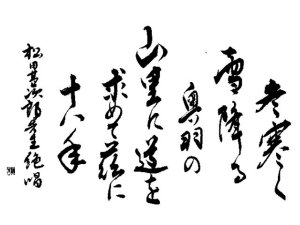 冬寒く
雪降る
奥羽の
山里に道を
求めて茲に
十八年
松田甚次郎先生絶唱